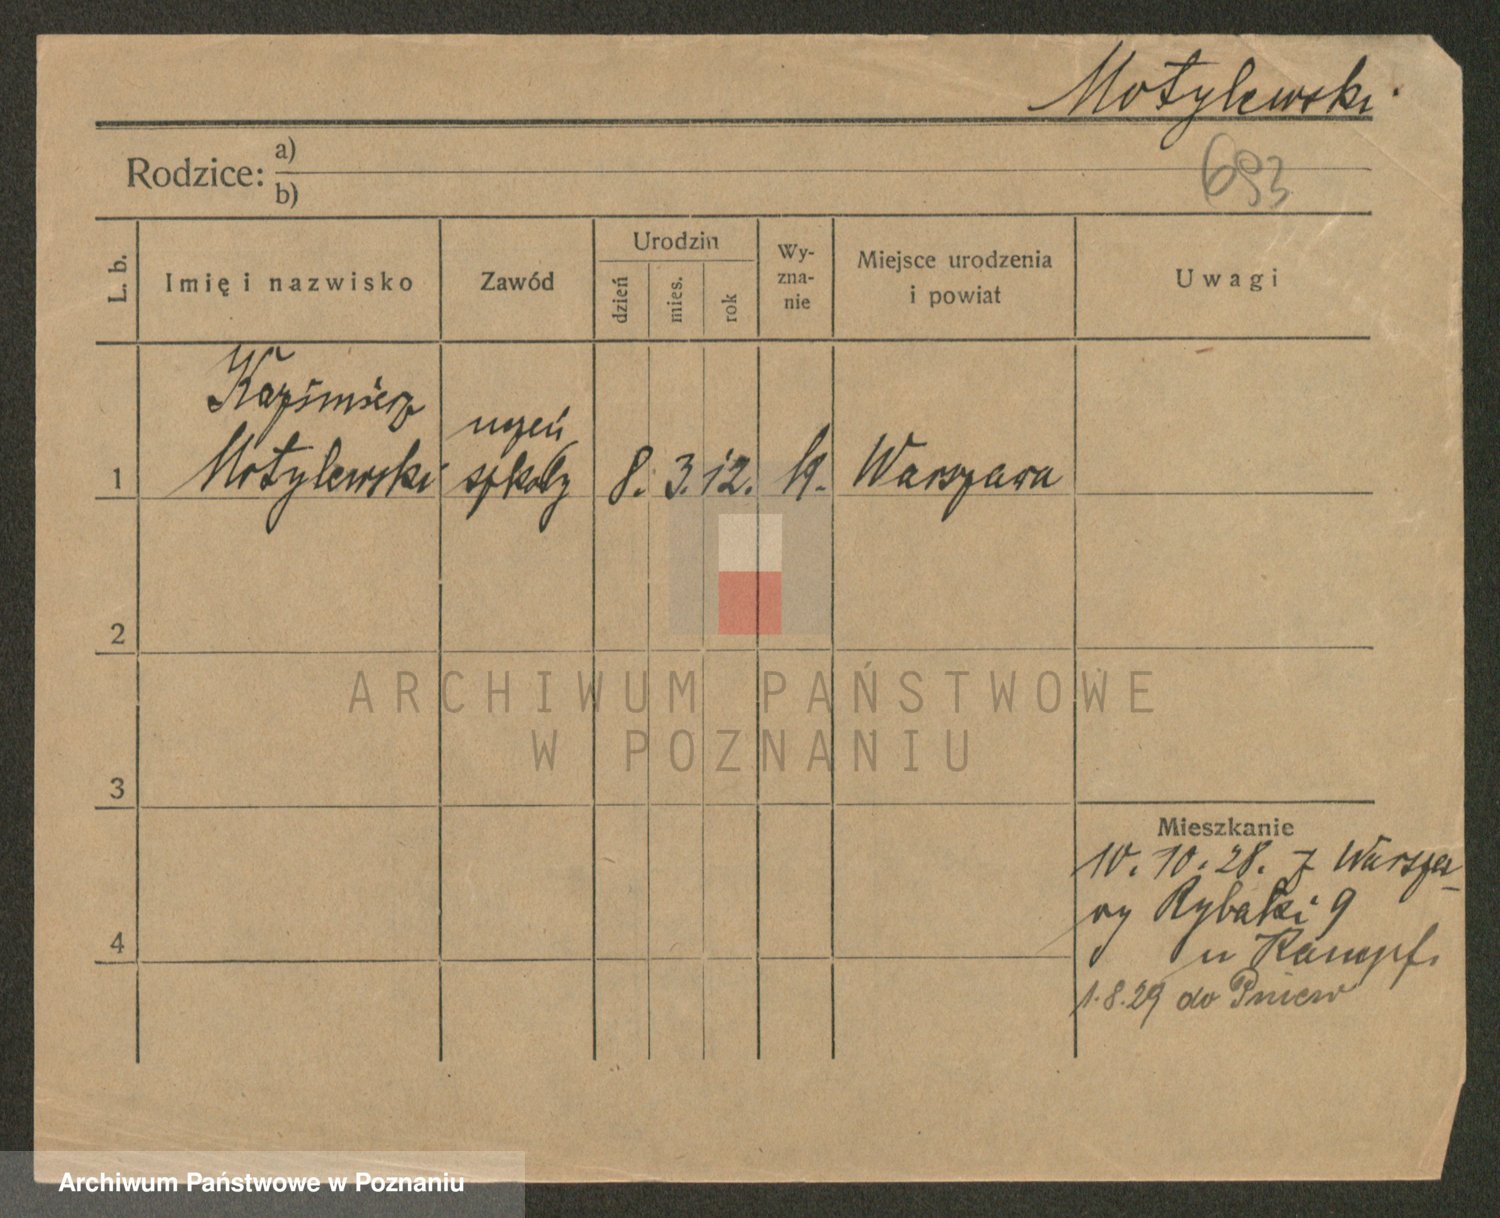 Motylewski
Rodzice: a)
b)
693
L. b.
Imię i nazwisko
Zawód
Urodzin
dzień
mies.
rok
Wy-
zna-
nie
Miejsce urodzenia
i powiat
Uwagi
Kazimierz
Motylewski
uczeń
szkoły
1
8. 3. 12.
Warszawa
2
3
4
ARCHIWUM PAŃSTWOWE
W POZNANIU
Mieszkanie
10. 10. 28. z Warsza-
wy Rybaki 9
u Kampf.
1.8.29 do Pniew
Archiwum Państwowe w Poznaniu